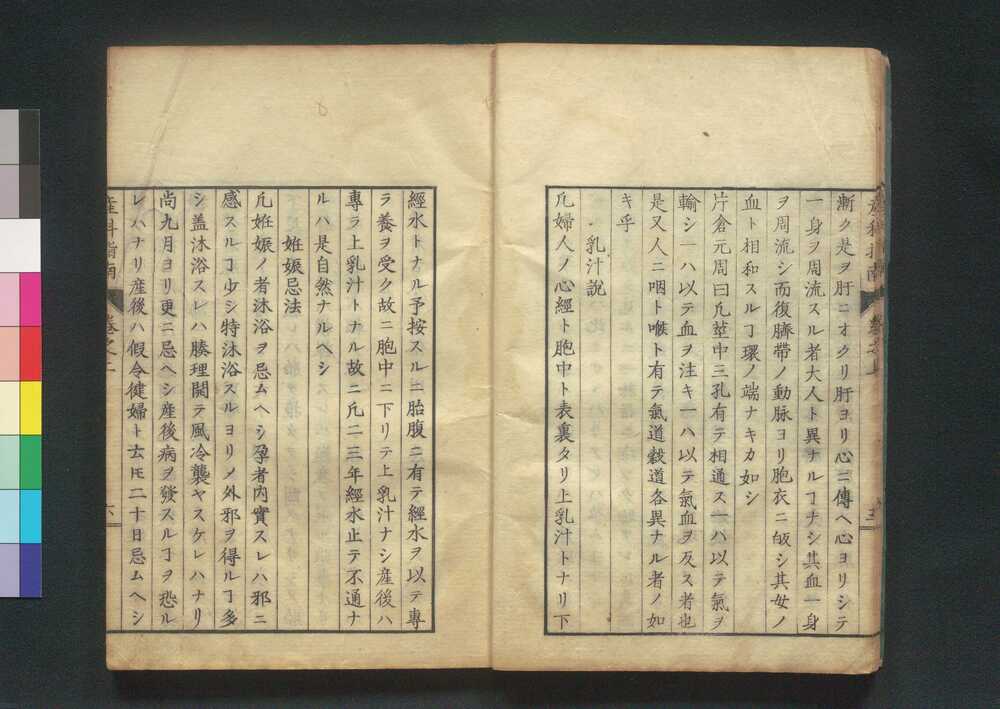 漸ク是ヲ肝ニオクリ肝ヨリ心ニ傳ヘ心ヨリシテ
一身ヲ周流スル者大人ト異ナルヿナシ其血一身
ヲ周流シ而復臍帶ノ動脉ヨリ胞衣ニ皈シ其女ノ
血ト相和スルヿ環ノ端ナキカ如シ
片倉元周曰凢莖中三孔有テ相通ス一ハ以テ氣ヲ
輸シ一ハ以テ血ヲ注キ一ハ以テ氣血ヲ反ス者也
是又人ニ咽ト喉ト有テ氣道糓道各異ナル者ノ如
キ乎
乳汁説
凢婦人ノ心經ト胞中ト表裏タリ上乳汁トナリ下
經水トナル予按スルニ胎腹ニ有テ經水ヲ以テ専
ラ養ヲ受ク故ニ胞中ニ下リテ上乳汁ナシ産後ハ
專ラ上乳汁トナル故ニ凢二三年經水止テ不通ナ
ルハ是自然ナルヘシ
妊娠忌法
凢妊娠ノ者沐浴ヲ忌ムヘシ孕者内實スレハ邪ニ
感スルヿ少シ特沐浴スルヨリノ外邪ヲ得ルヿ多
シ盖沐浴スレハ腠理開テ風冷襲ヤスケレハナリ
尚九月ヨリ更ニ忌ヘシ産後病ヲ發スルヿヲ恐ル
レハナリ産後ハ假令健婦ト云𪜈二十日忌ムヘシ
産科指南
卷之上
六